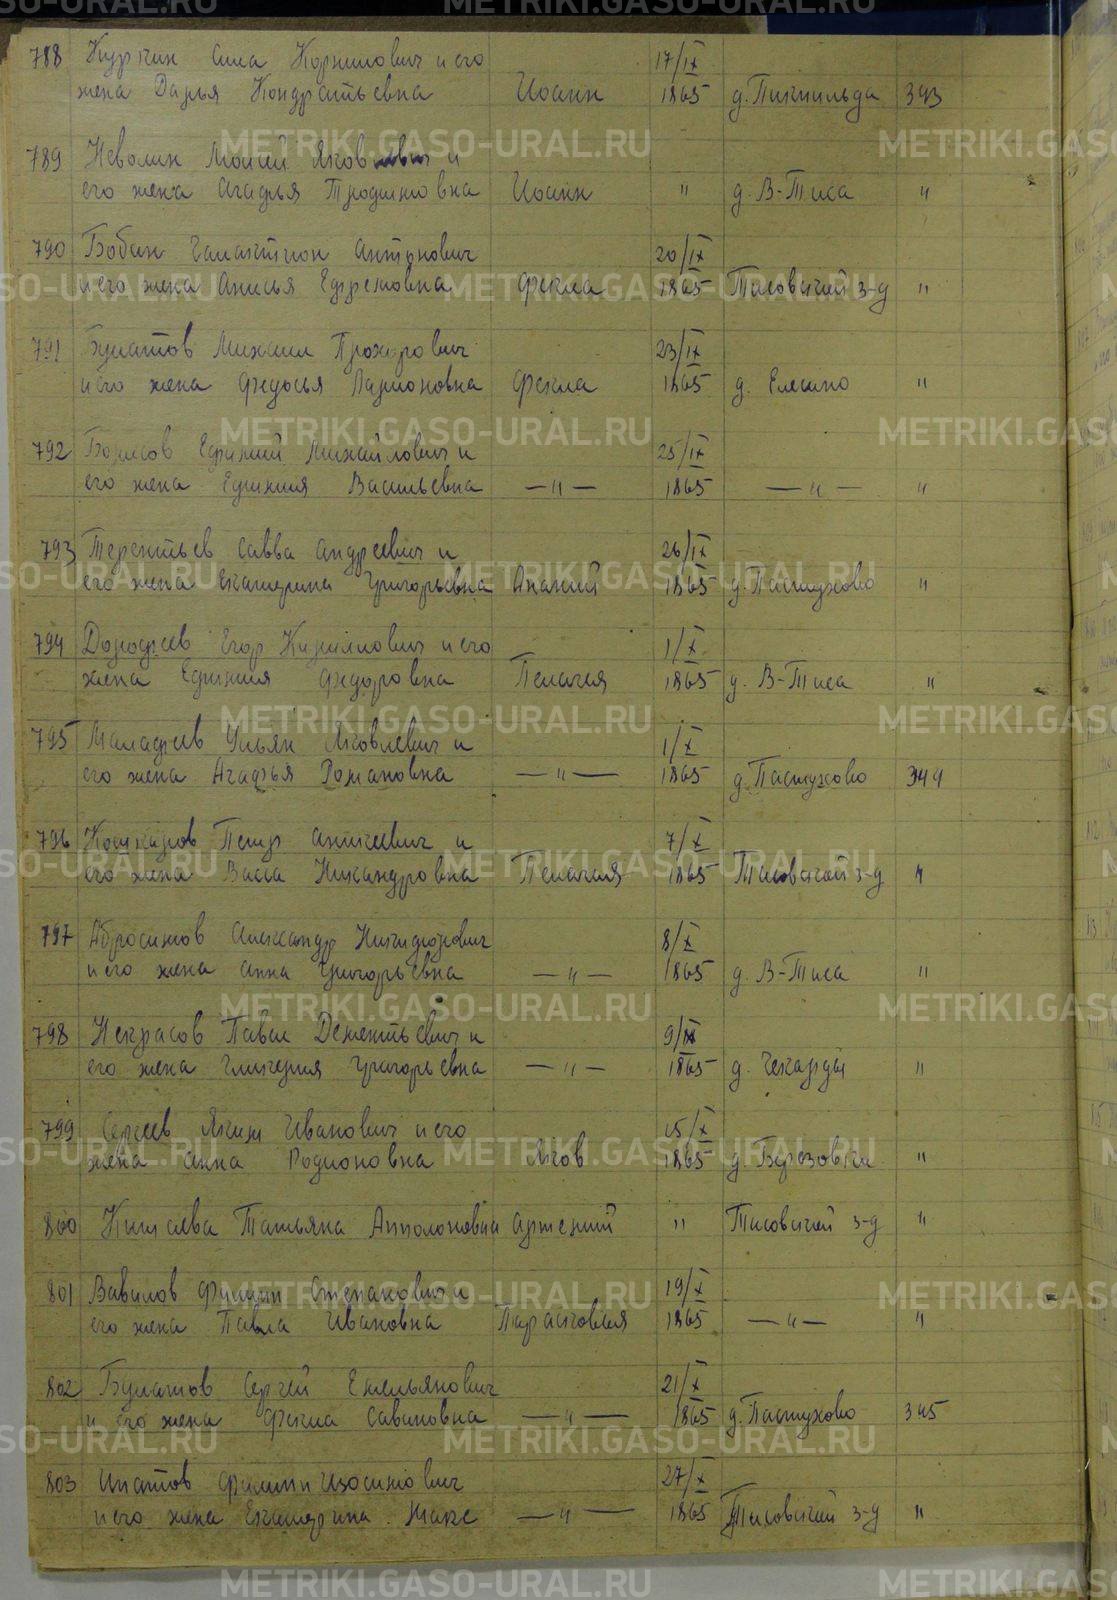 788 Куркин Сила Корнилович и его 17/IX
жена Дарья Кондратьевна Иоанн 1865 д. 343
789 Неволин Моисей Яков и
его жена Агафья Иоанн " д. В-Тиса "
790 Бобин Галактион Антонович 20/IX
и его жена Анисья Ефремовна Фекла 1865 Тисовский з-д "
791 Булатов Михаил Прохорович 23/IX
и его жена Федосья Ларионовна Фекла 1865 д. Елкино "
792 Борисов Ефимий Михайлович и 25/IX
его жена Ефимия Васильевна —"— 1865 —"— "
793 Терентьев Савва Андреевич и 26/IX
его жена Екатерина Григорьевна Ананий 1865 д. Пастухово "
794 Дорофеев Егор Кириллович и его 1/X
жена Ефимия Федоровна Пелагея 1865 д. В-Тиса "
795 Малафеев Ульян Яковлевич и 1/X
его жена Агафья Романовна —"— 1865 д. Пастухово 344
796 Петр и 7/X
его жена Васса Никандровна Пелагея 1865 Тисовский з-д "
797 Абросимов Александр Никифорович 8/X
и его жена Анна Григорьевна —"— 1865 д. В-Тиса "
798 Некрасов Павел Дементьевич и 9/IX
его жена Гликерия Григорьевна —"— 1865 д. Чекарды "
799 Сергеев Яким Иванович и его 15/X
жена Анна Родионовна Яков 1865 д. "
800 Китаева Татьяна Апполоновна Артемий " Тисовский з-д "
801 Вавилов Филипп Степанович и 19/X
его жена Павла Ивановна Парасковия 1865 —"— "
802 Булатов Сергей Емельянович 21/X
и его жена Фекла Савиновна —"— 1865 д. Пастухово 345
803 Ипатов Филипп Изосимович 27/X
и его жена Екатерина Макс —"— 1865 Тисовский з-д "
METRIKI.GASO-URAL.RU